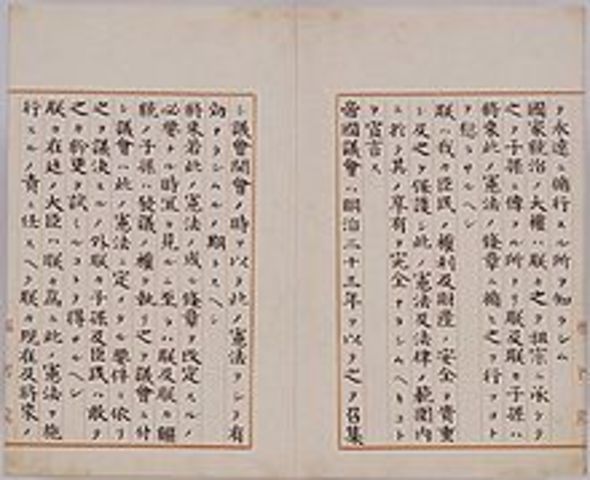 ヲ永遠ニ循行スル所ヲ知ラシム
國家統治ノ大權ハ朕カ之ヲ祖宗ニ承ケテ
之ヲ子孫ニ傳フル所ナリ朕及朕カ子孫ハ
將來此ノ憲法ノ條章ニ循ヒ之ヲ行フコト
ヲ愆ラサルヘシ
朕ハ我カ臣民ノ權利及財產ノ安全ヲ貴重
シ及之ヲ保護シ此ノ憲法及法律ノ範圍内
ニ於テ其ノ享有ヲ完全ナラシムヘキコト
ヲ宣言ス
帝國議會ハ明治二十三年ヲ以テ之ヲ召集
シ議會開會ノ時ヲ以テ此ノ憲法ヲシテ有
効ナラシムルノ期トスヘシ
將來若此ノ憲法ノ或ル條章ヲ改定スルノ
必要ナル時宜ヲ見ルニ至ラハ朕及朕カ繼
統ノ子孫ハ發議ノ權ヲ執リ之ヲ議會ニ付
シ議會ハ此ノ憲法ニ定メタル要件ニ依リ
之ヲ議決スルノ外朕カ子孫及臣民ハ敢テ
之カ紛更ヲ試ミルコトヲ得サルヘシ
朕カ在廷ノ大臣ハ朕カ爲ニ此ノ憲法ヲ施
行スルノ責ニ任スヘク朕カ現在及將來ノ